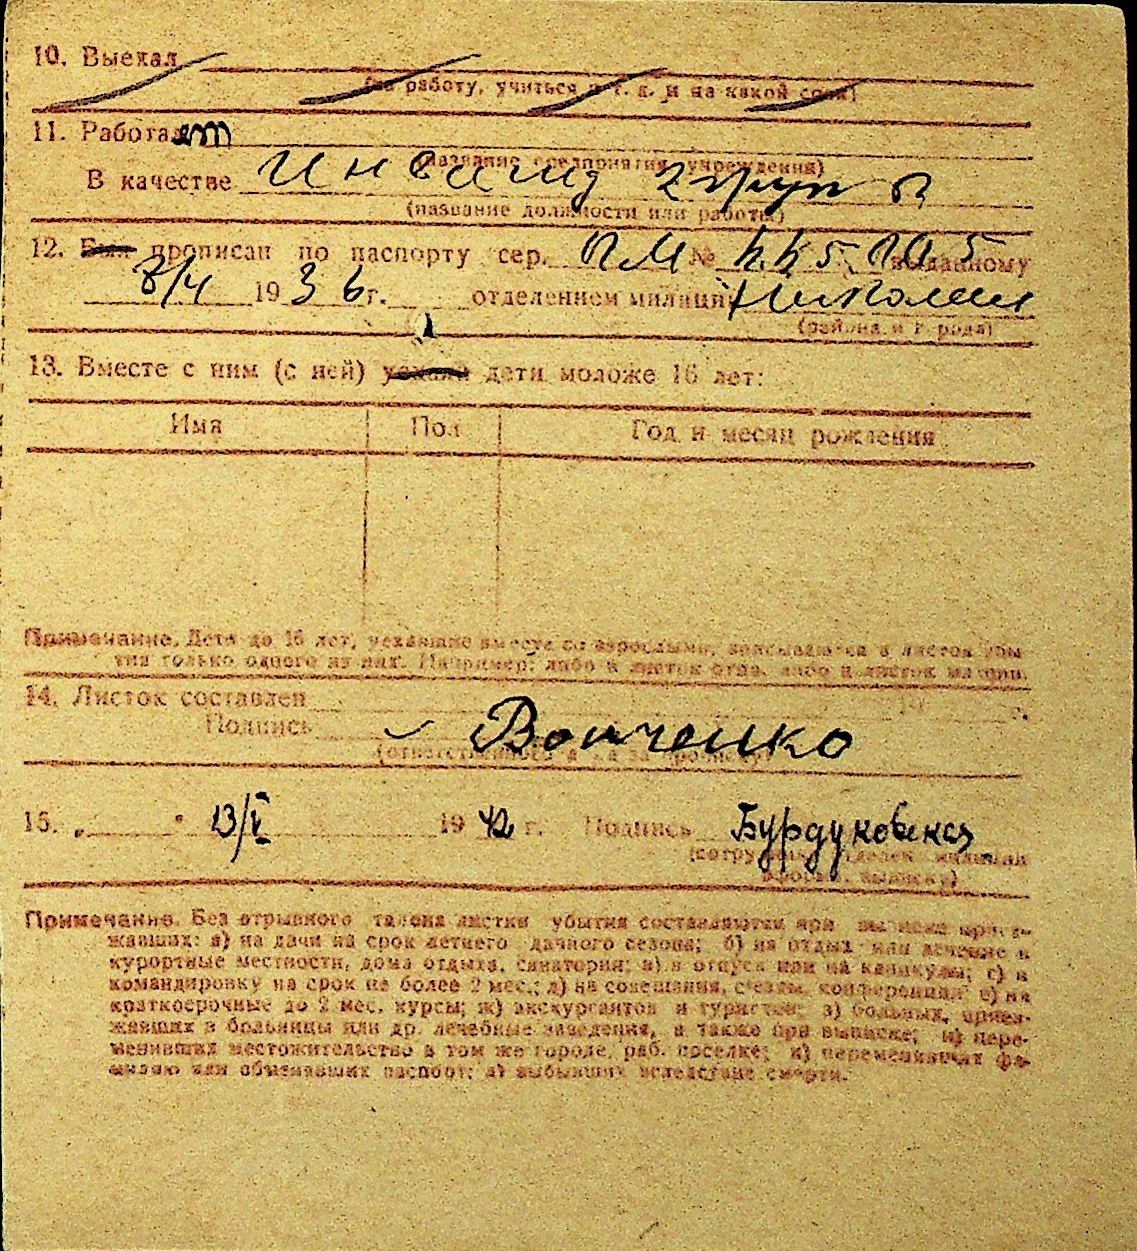 10. Выехал
(на работу, учиться и т. д. и на какой срок)
11. Работает
(название предприятия, учреждения)
В качестве инвалид 2 груп
(название должности или работы)
12. Был прописан по паспорту сер. №  выданному
8/4 1936 г. отделением милиции
(района и города)
13. Вместе с ним (с ней) уехали дети моложе 16 лет:
Имя Пол Год и месяц рождения
Примечание. Дети до 16 лет, уехавшие вместе со взрослыми, вписываются в листок убы
тия только одного из них. Например: либо в листок отца, либо в листок матери.
14. Листок составлен 19 г.
Подпись
(ответственного за прописку)
15. „ “ 13/V 1942 г. Подпись Бурдуковская
милиции
выписку)
Примечание. Без отрывного талона листки убытия составляются при выписке приез-
жавших: а) на дачи на срок летнего дачного сезона; б) на отдых или лечение в
курортные местности, дома отдыха, санатории; в) в отпуск или на каникулы; г) в
командировку на срок не более 2 мес.; д) на совещания, съезды, конференции; е) на
краткосрочные до 2 мес. курсы; ж) экскурсантов и туристов; з) больных, приез-
жавших в больницы или др. лечебные заведения, а также при выписке; и) пере-
менивших местожительство в том же городе, раб. поселке; к) переменивших фа-
милию или обменявших паспорт; л) выбывших вследствие смерти.